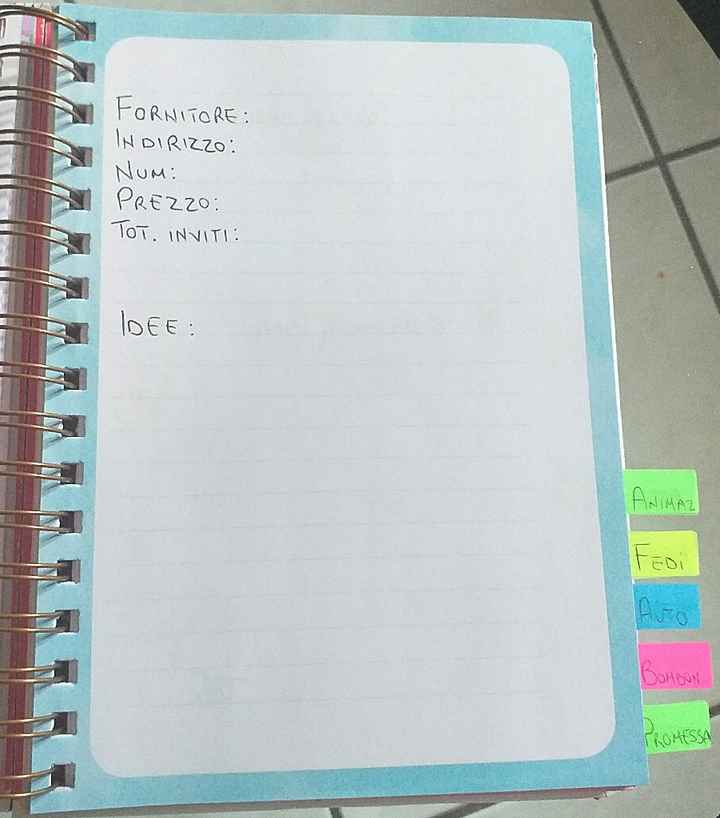 FORNITORE:
INDIRIZZO:
NUM:
PREZZO:
TOT. INVITI:
IDEE:
ANIMAZ
FEDI
AUTO
BOMBON
PROMESSA